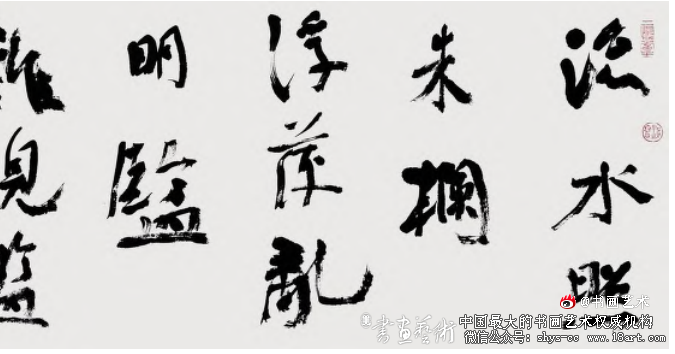 流水照
朱欄
浮萍亂
明鑑
見
@书画艺术
書畫藝術
中国最大的书画艺术权威机构
微信公众号: shys-cc www.18art.com